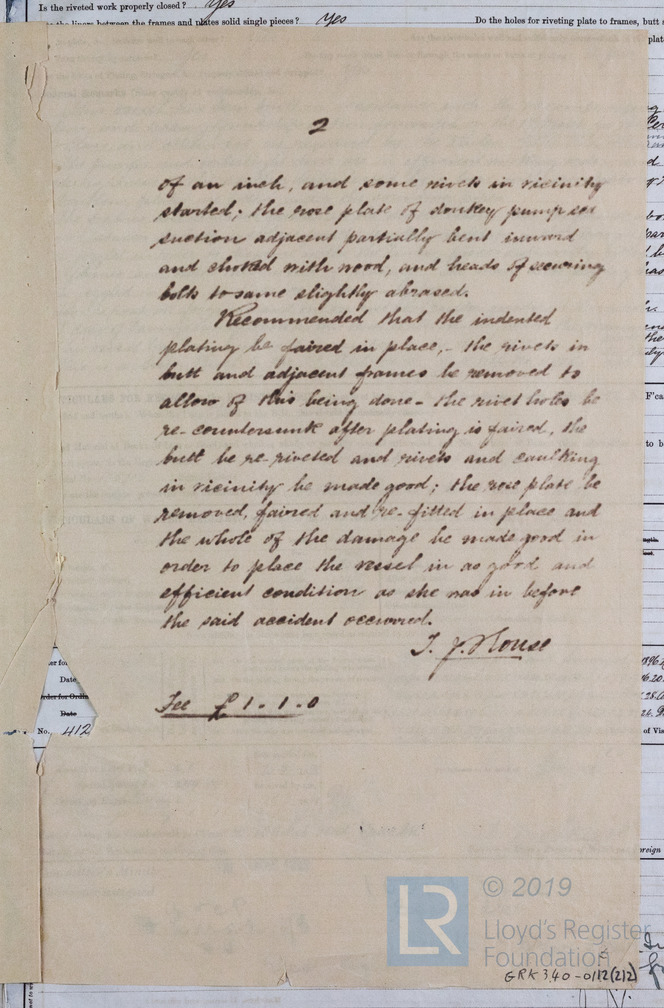 Is the riveted work properly closed? Yes
the liners between the frames and plates solid single pieces? Yes
Do the holes for riveting plate to frames, butt
2
of an inch, and some rivets in vicinity
started; the rose plate of donkey pump sea
suction adjacent partially bent inward
and choked with wood, and heads of securing
bolts to same slightly abraded.
Recommended that the indented
plating be faired in place, - the rivets in
butt and adjacent frames be removed to
allow of this being done - the rivet holes be
re-countersunk after plating is faired, the
butt be re-riveted and rivets and caulking
in vicinity be made good; the rose plate be
removed, faired and re-fitted in place and
the whole of the damage be made good in
order to place the vessel in as good and
efficient condition as she was in before
the said accident occurred.
Fee £1.1.0
Date
Date
No. 412
of Vis
© 2019
LR
Lloyd's Register
Foundation
GRK340-0112(2/2)